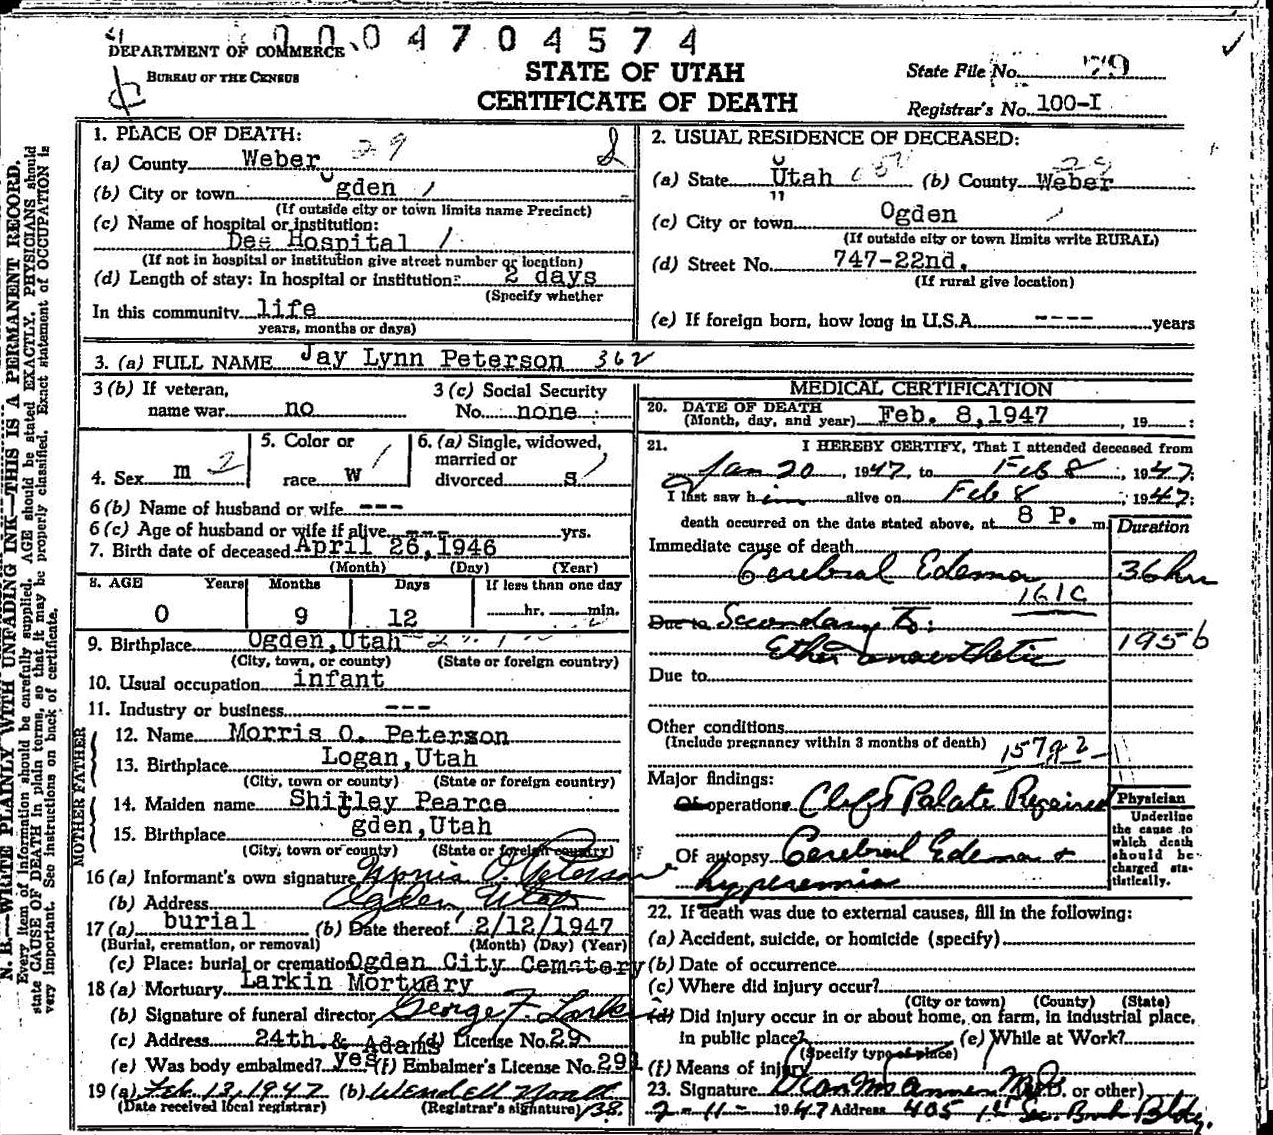 0004704574
DEPARTMENT OF COMMERCE
BUREAU OF THE CENSUS
STATE OF UTAH
CERTIFICATE OF DEATH
State File No. 79
Registrar's No. 100-I
N. B.—WRITE PLAINLY WITH UNFADING INK—THIS IS A PERMANENT RECORD.
Every item of information should be carefully supplied. AGE should be stated EXACTLY. PHYSICIANS should
state CAUSE OF DEATH in plain terms, so that it may be properly classified. Exact statement of OCCUPATION is
very important. See instructions on back of certificate.
1. PLACE OF DEATH:
(a) County Weber 29
(b) City or town Ogden
(If outside city or town limits name Precinct)
(c) Name of hospital or institution:
Dee Hospital
(If not in hospital or institution give street number or location)
(d) Length of stay: In hospital or institution: 2 days
(Specify whether
In this community life
years, months or days)
2. USUAL RESIDENCE OF DECEASED:
(a) State Utah (b) County Weber 29
(c) City or town Ogden
(If outside city or town limits write RURAL)
(d) Street No. 747-22nd.
(If rural give location)
(e) If foreign born, how long in U.S.A. ---- years
3. (a) FULL NAME Jay Lynn Peterson 362
3 (b) If veteran,
name war no
3 (c) Social Security
No. none
4. Sex m 2
5. Color or
race W
6. (a) Single, widowed,
married or
divorced S
6 (b) Name of husband or wife ---
6 (c) Age of husband or wife if alive --- yrs.
7. Birth date of deceased April 26,1946
(Month) (Day) (Year)
8. AGE Years Months Days If less than one day
0 9 12 hr. min.
9. Birthplace Ogden,Utah
(City, town, or county) (State or foreign country)
10. Usual occupation infant
11. Industry or business ---
FATHER
12. Name Morris O. Peterson
13. Birthplace Logan,Utah
(City, town or county) (State or foreign country)
MOTHER
14. Maiden name Shirley Pearce
15. Birthplace Ogden,Utah
(City, town or county) (State or foreign country)
16 (a) Informant's own signature Morris O. Peterson
(b) Address Ogden, Utah
17 (a) burial (b) Date thereof 2/12/1947
(Burial, cremation, or removal) (Month) (Day) (Year)
(c) Place: burial or cremation Ogden City Cemetery
18 (a) Mortuary Larkin Mortuary
(b) Signature of funeral director George F. Larkin
(c) Address 24th & Adams (d) License No. 29
(e) Was body embalmed? yes (f) Embalmer's License No. 291
19 (a) Feb 13, 1947 (b)
(Date received local registrar) (Registrar's signature)
MEDICAL CERTIFICATION
20. DATE OF DEATH
(Month, day, and year) Feb. 8,1947, 19
21. I HEREBY CERTIFY, That I attended deceased from
Jan 20, 1947, to Feb 8, 1947;
I last saw him alive on Feb 8, 1947;
death occurred on the date stated above, at 8 P. m.
Duration
Immediate cause of death
Cerebral Edema 36 hrs
161c
Due to Secondary to:
Ether anaesthetic 195b
Due to
Other conditions
(Include pregnancy within 3 months of death) 157g2
Major findings:
Of operations Cleft Palate Repaired
Of autopsy Cerebral Edema +
hyperemia
Physician
Underline
the cause to
which death
should be
charged sta-
tistically.
22. If death was due to external causes, fill in the following:
(a) Accident, suicide, or homicide (specify)
(b) Date of occurrence
(c) Where did injury occur?
(City or town) (County) (State)
(d) Did injury occur in or about home, on farm, in industrial place,
in public place? (e) While at Work?
(Specify type of place)
(f) Means of injury
23. Signature (M.D. or other)
2-11-1947 Address 405 1st Sec. Bank Bldg.